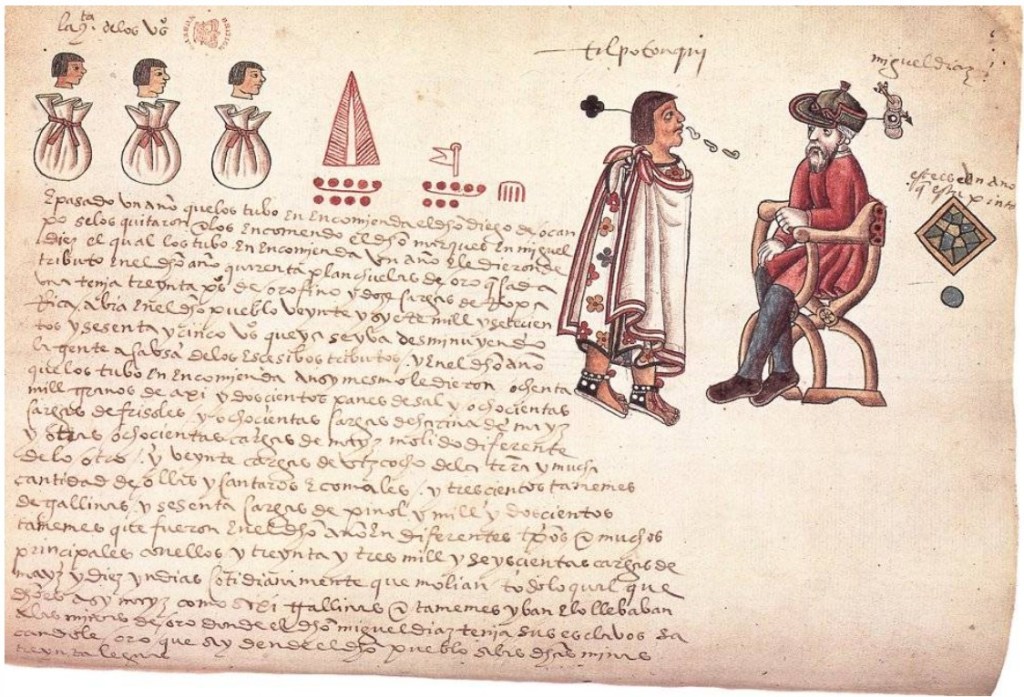 la q.ta delos vos
tilpotonqui
miguel diaz
este es el año
q esta pinta
E pasado un año que los tubo En Encomienda el dho diego de ocan
po se los quitaron E los Encomendo el dho marques En miguel
diez el qual los tubo En Encomienda un año E le dieron de
tributo En el dho año quarenta planchuelas de oro q cada
una tenia treynta pos de oro fino y doze cargas de Ropa
Rica abia En el dho pueblo veynte y syete mill y setecien
tos y sesenta y cinco vos que ya se yva desminuyendo
la gente a causa de los Escesibos tributos y En el dho año
que los tubo En Encomienda ansy mesmo le dieron ochenta
mill granos de axi y doscientos panes de sal y ochocientas
cargas de frisoles y ochocientas cargas de harina de mayz
y otras ochocientas cargas de mayz molido diferente
de lo otro y veynte cargas de vizcocho dela tirra y mucha
cantidad de ollas y cantaros E comales y trescientos tamemes
de gallinas y sesenta cargas de pinol y mill y doscientos
tamemes que fueron En el dho año En diferentes tpos @ muchos
principales conellos y treynta y tres mill y seyscientas cargas de
mayz y diez yndias cotidianamente que molian todo lo qual que
dho es asy mayz como axi gallinas @ tamemes yban E lo llebaban
a las minas de oro donde el dho miguel diaz tenia sus esclavos sa
candole oro que ay dende el dho pueblo a las dhas minas
treynta leguas